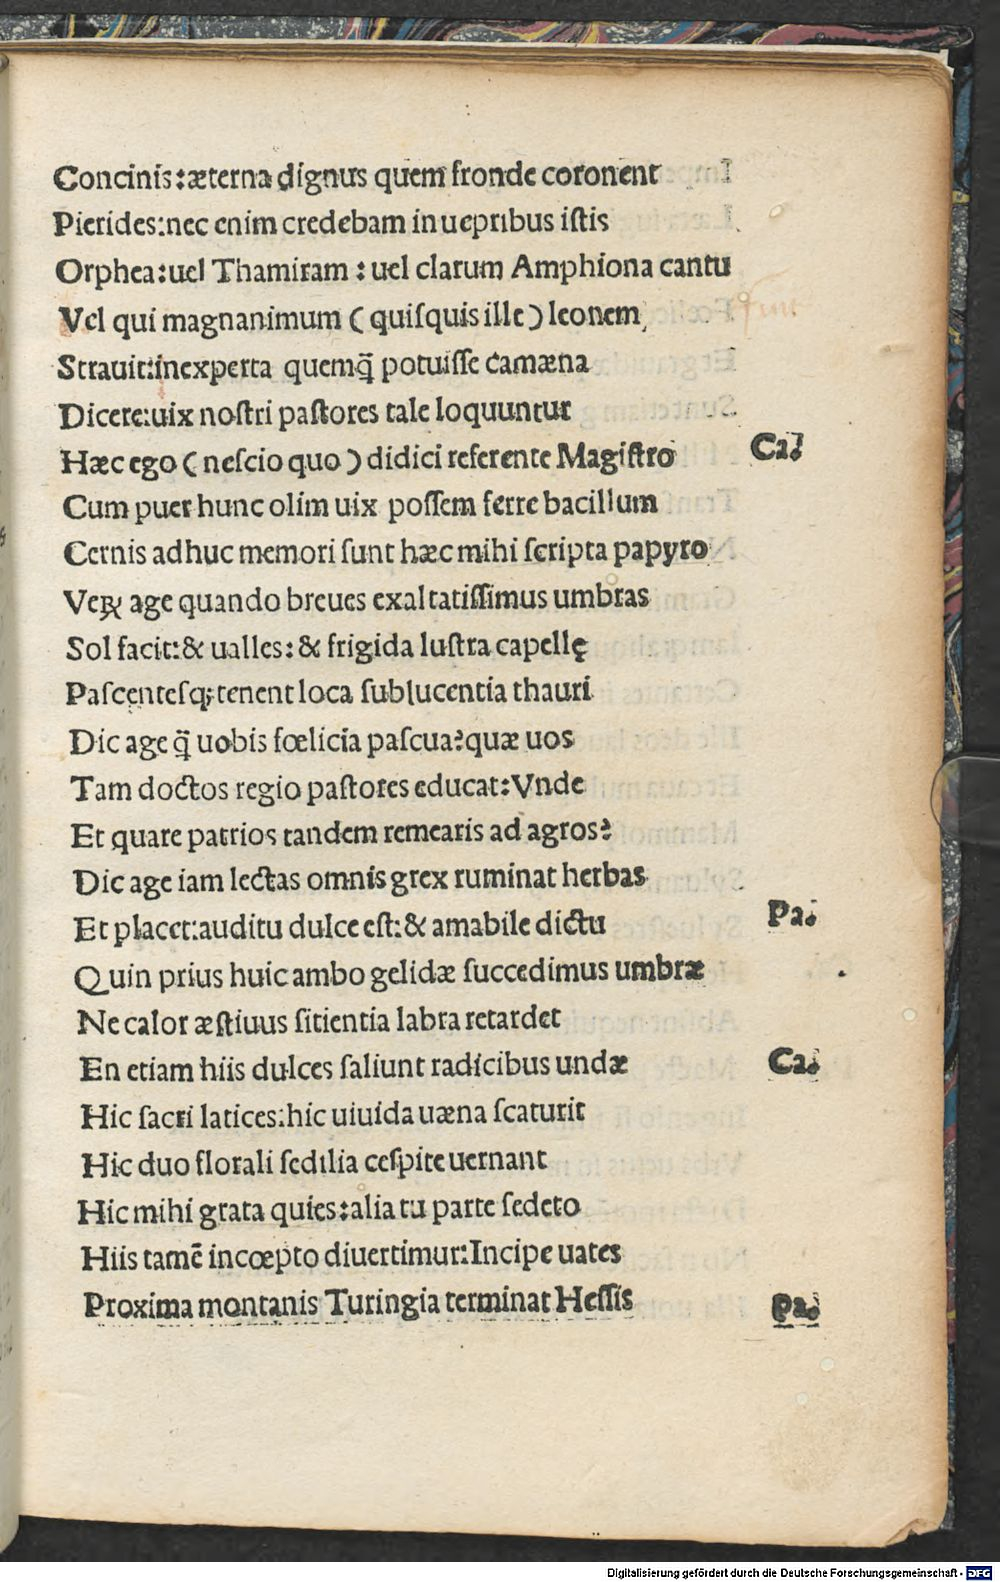 Concinis:æterna dignus quem fronde coronent
Pierides:nec enim credebam in uepribus iſtis
Orphea:uel Thamiram : uel clarum Amphiona cantu
Vel qui magnanimum ( quiſquis ille ) leonem
Stravit:inexperta quemq̃ potuiſſe camæna
Dicere:uix noſtri paſtores tale loquuntur
Hæc ego ( neſcio quo ) didici referente Magiſtro Ca.
Cum puer hunc olim uix poſſem ferre bacillum
Cernis adhuc memori ſunt hæc mihi ſcripta papyro
Veꝝ age quando breues exaltatiſſimus umbras
Sol facit:& ualles: & frigida luſtra capellę
Paſcenteſq; tenent loca ſublucentia thauri
Dic age q̃ uobis fœlicia paſcua?quæ uos
Tam doctos regio paſtores educat:Vnde
Et quare patrios tandem remearis ad agros?
Dic age iam lectas omnis grex ruminat herbas
Et placet:auditu dulce eſt:& amabile dictu Pa.
Quin prius huic ambo gelidæ ſuccedimus umbræ
Ne calor æſtiuus ſitientia labra retardet
En etiam hiis dulces ſaliunt radicibus undæ Ca.
Hic ſacri latices:hic uiuida uæna ſcaturit
Hic duo florali ſedilia ceſpite uernant
Hic mihi grata quies:alia tu parte ſedeto
Hiis tamẽ incœpto diuertimur:Incipe uates
Proxima montanis Turingia terminat Heſſis Pa.
Digitalisierung gefördert durch die Deutsche Forschungsgemeinschaft - DFG